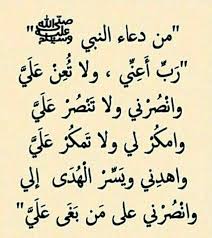 "من دعاء النبي ﷺ"
"رَبِّ أَعِنِّي ، ولا تُعِنْ عَلَيَّ
وانْصُرْني ولا تَنْصُرْ عَلَيَّ
وامكُرْ لي ولا تَمكُرْ عَلَيَّ
واهدِني ويَسِّرْ الْهُدَى إلي
وانْصُرْني على مَن بَغَى عَلَيَّ"